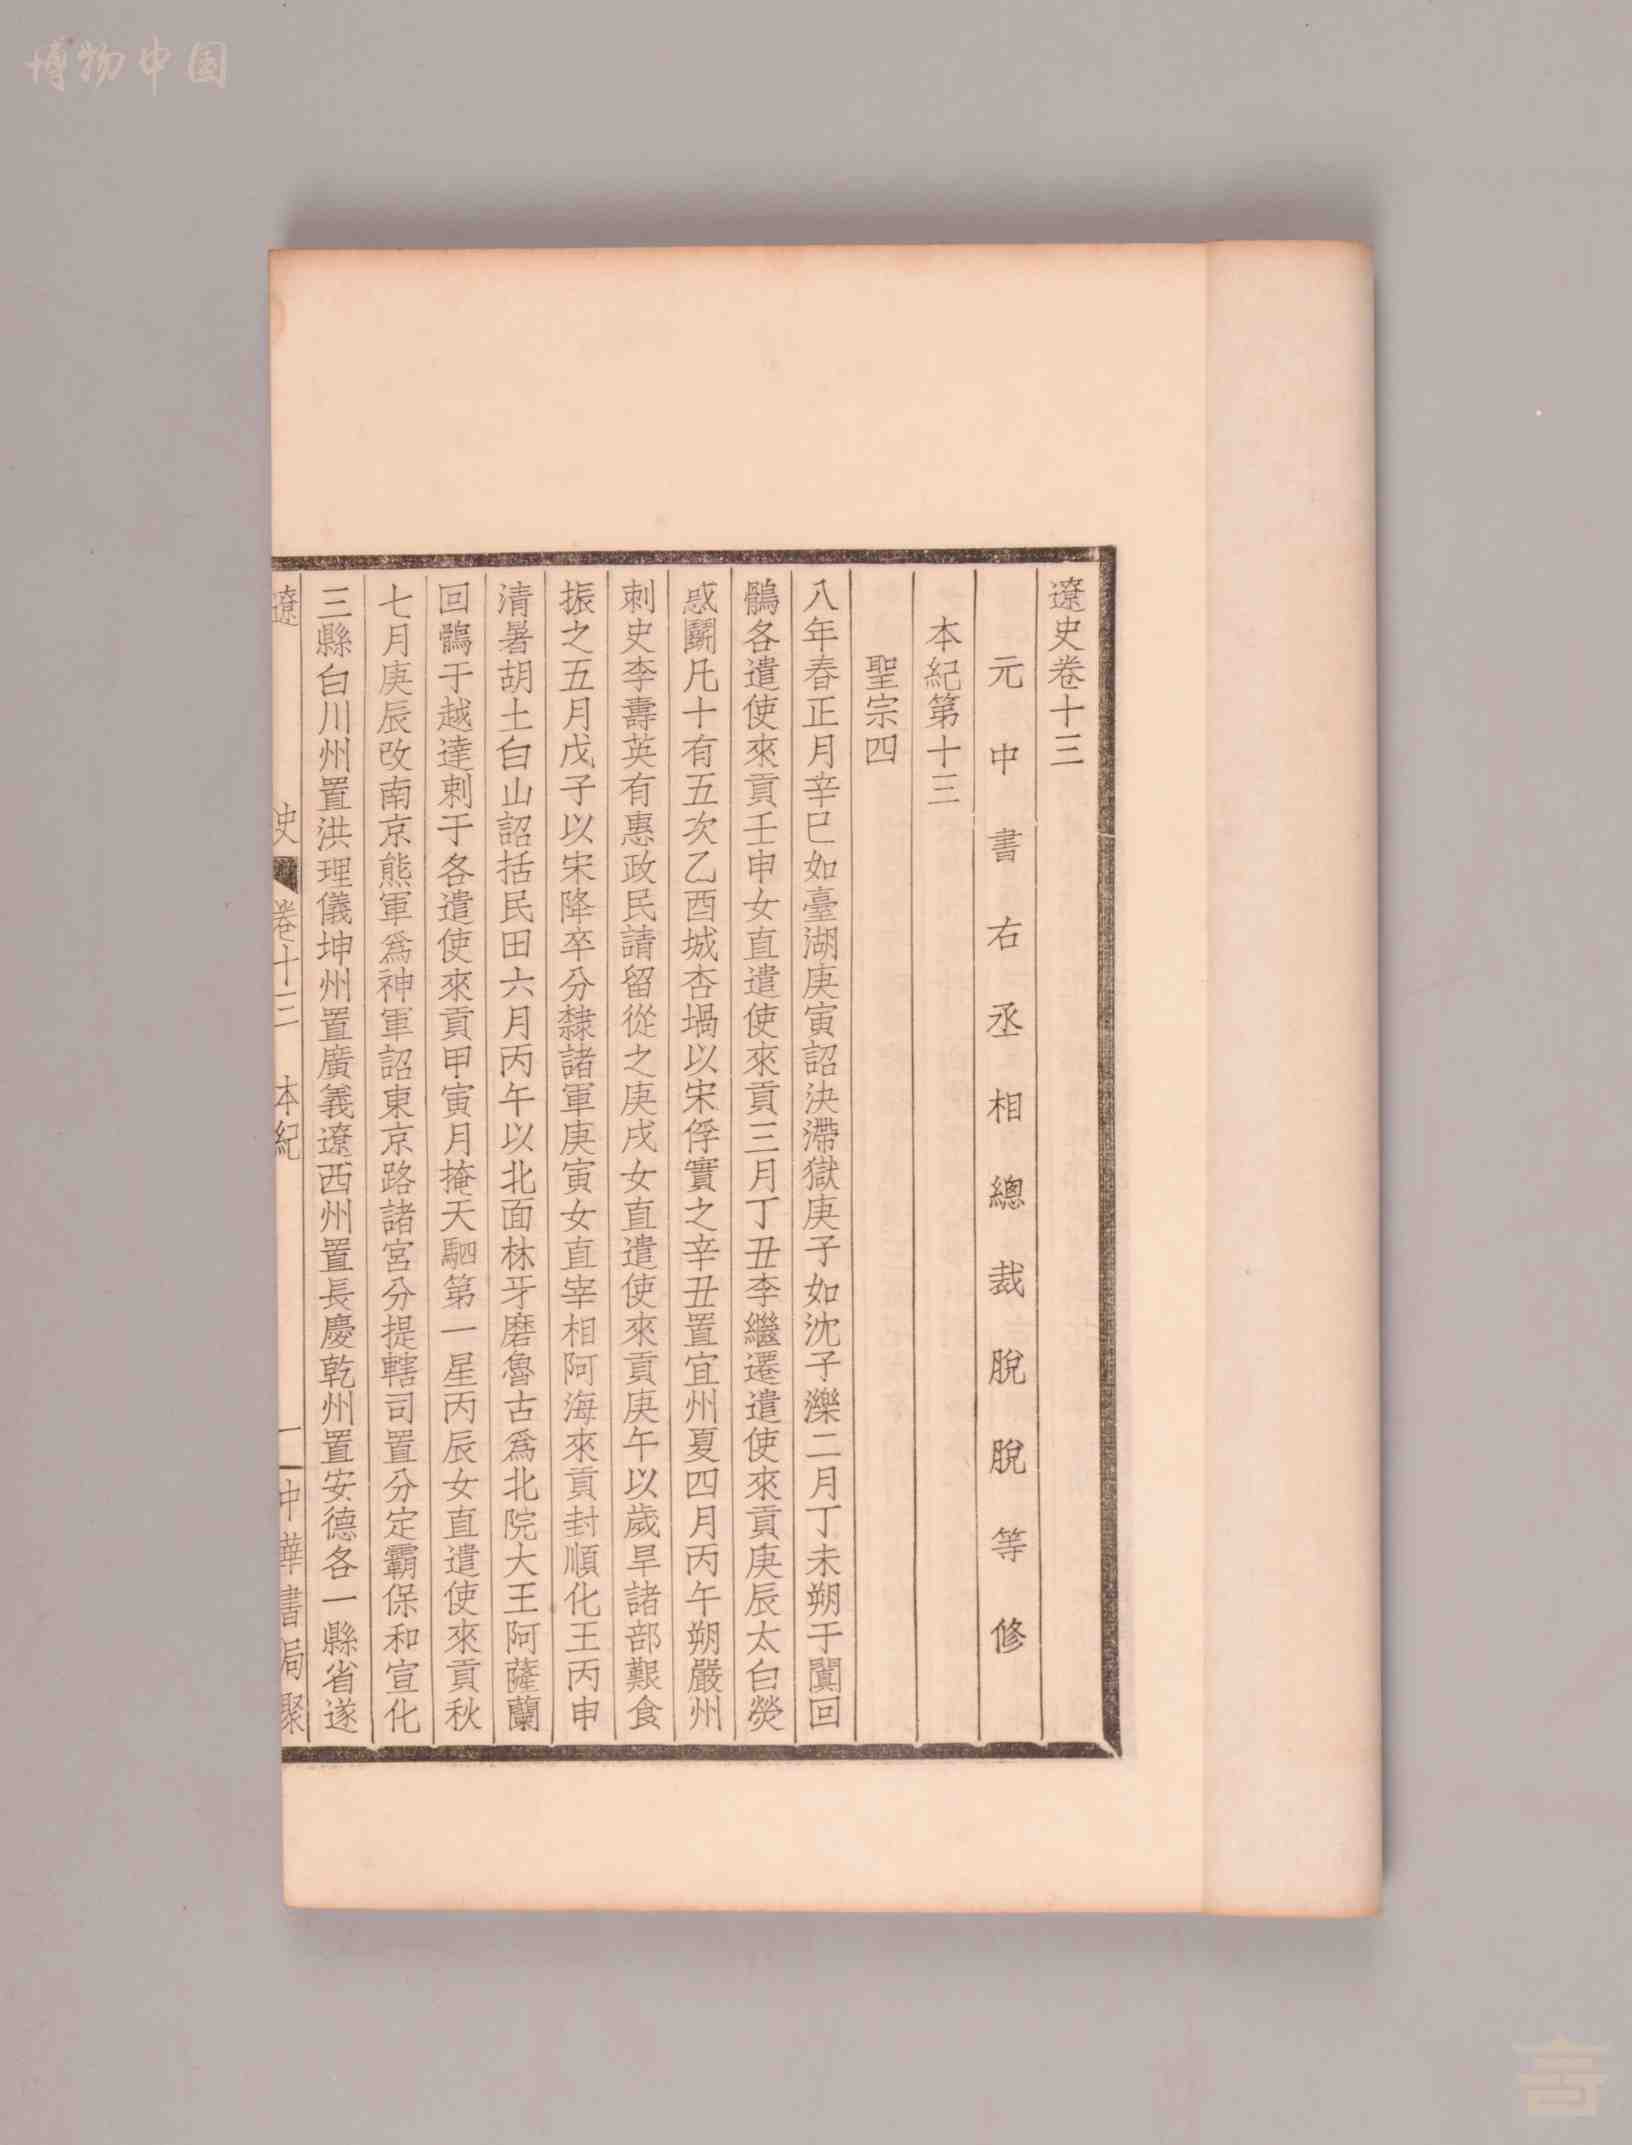 博物中国
遼史卷十三
元中書右丞相總裁脫脫等修
本紀第十三
聖宗四
八年春正月辛巳如臺湖庚寅詔決滯獄庚子如沈子濼二月丁未朔于闐回
鶻各遣使來貢壬申女直遣使來貢三月丁丑李繼遷遣使來貢庚辰太白熒
惑鬬凡十有五次乙酉城杏堝以宋俘實之辛丑置宜州夏四月丙午朔嚴州
刺史李壽英有惠政民請留從之庚戌女直遣使來貢庚午以歲旱諸部艱食
振之五月戊子以宋降卒分隸諸軍庚寅女直宰相阿海來貢封順化王丙申
清暑胡土白山詔括民田六月丙午以北面林牙磨魯古爲北院大王阿薩蘭
回鶻于越達剌干各遣使來貢甲寅月掩天駟第一星丙辰女直遣使來貢秋
七月庚辰改南京熊軍爲神軍詔東京路諸宮分提轄司置分定霸保和宣化
三縣白川州置洪理儀坤州置廣義遼西州置長慶乾州置安德各一縣省遂
遼史 卷十三 本紀 一 中華書局聚